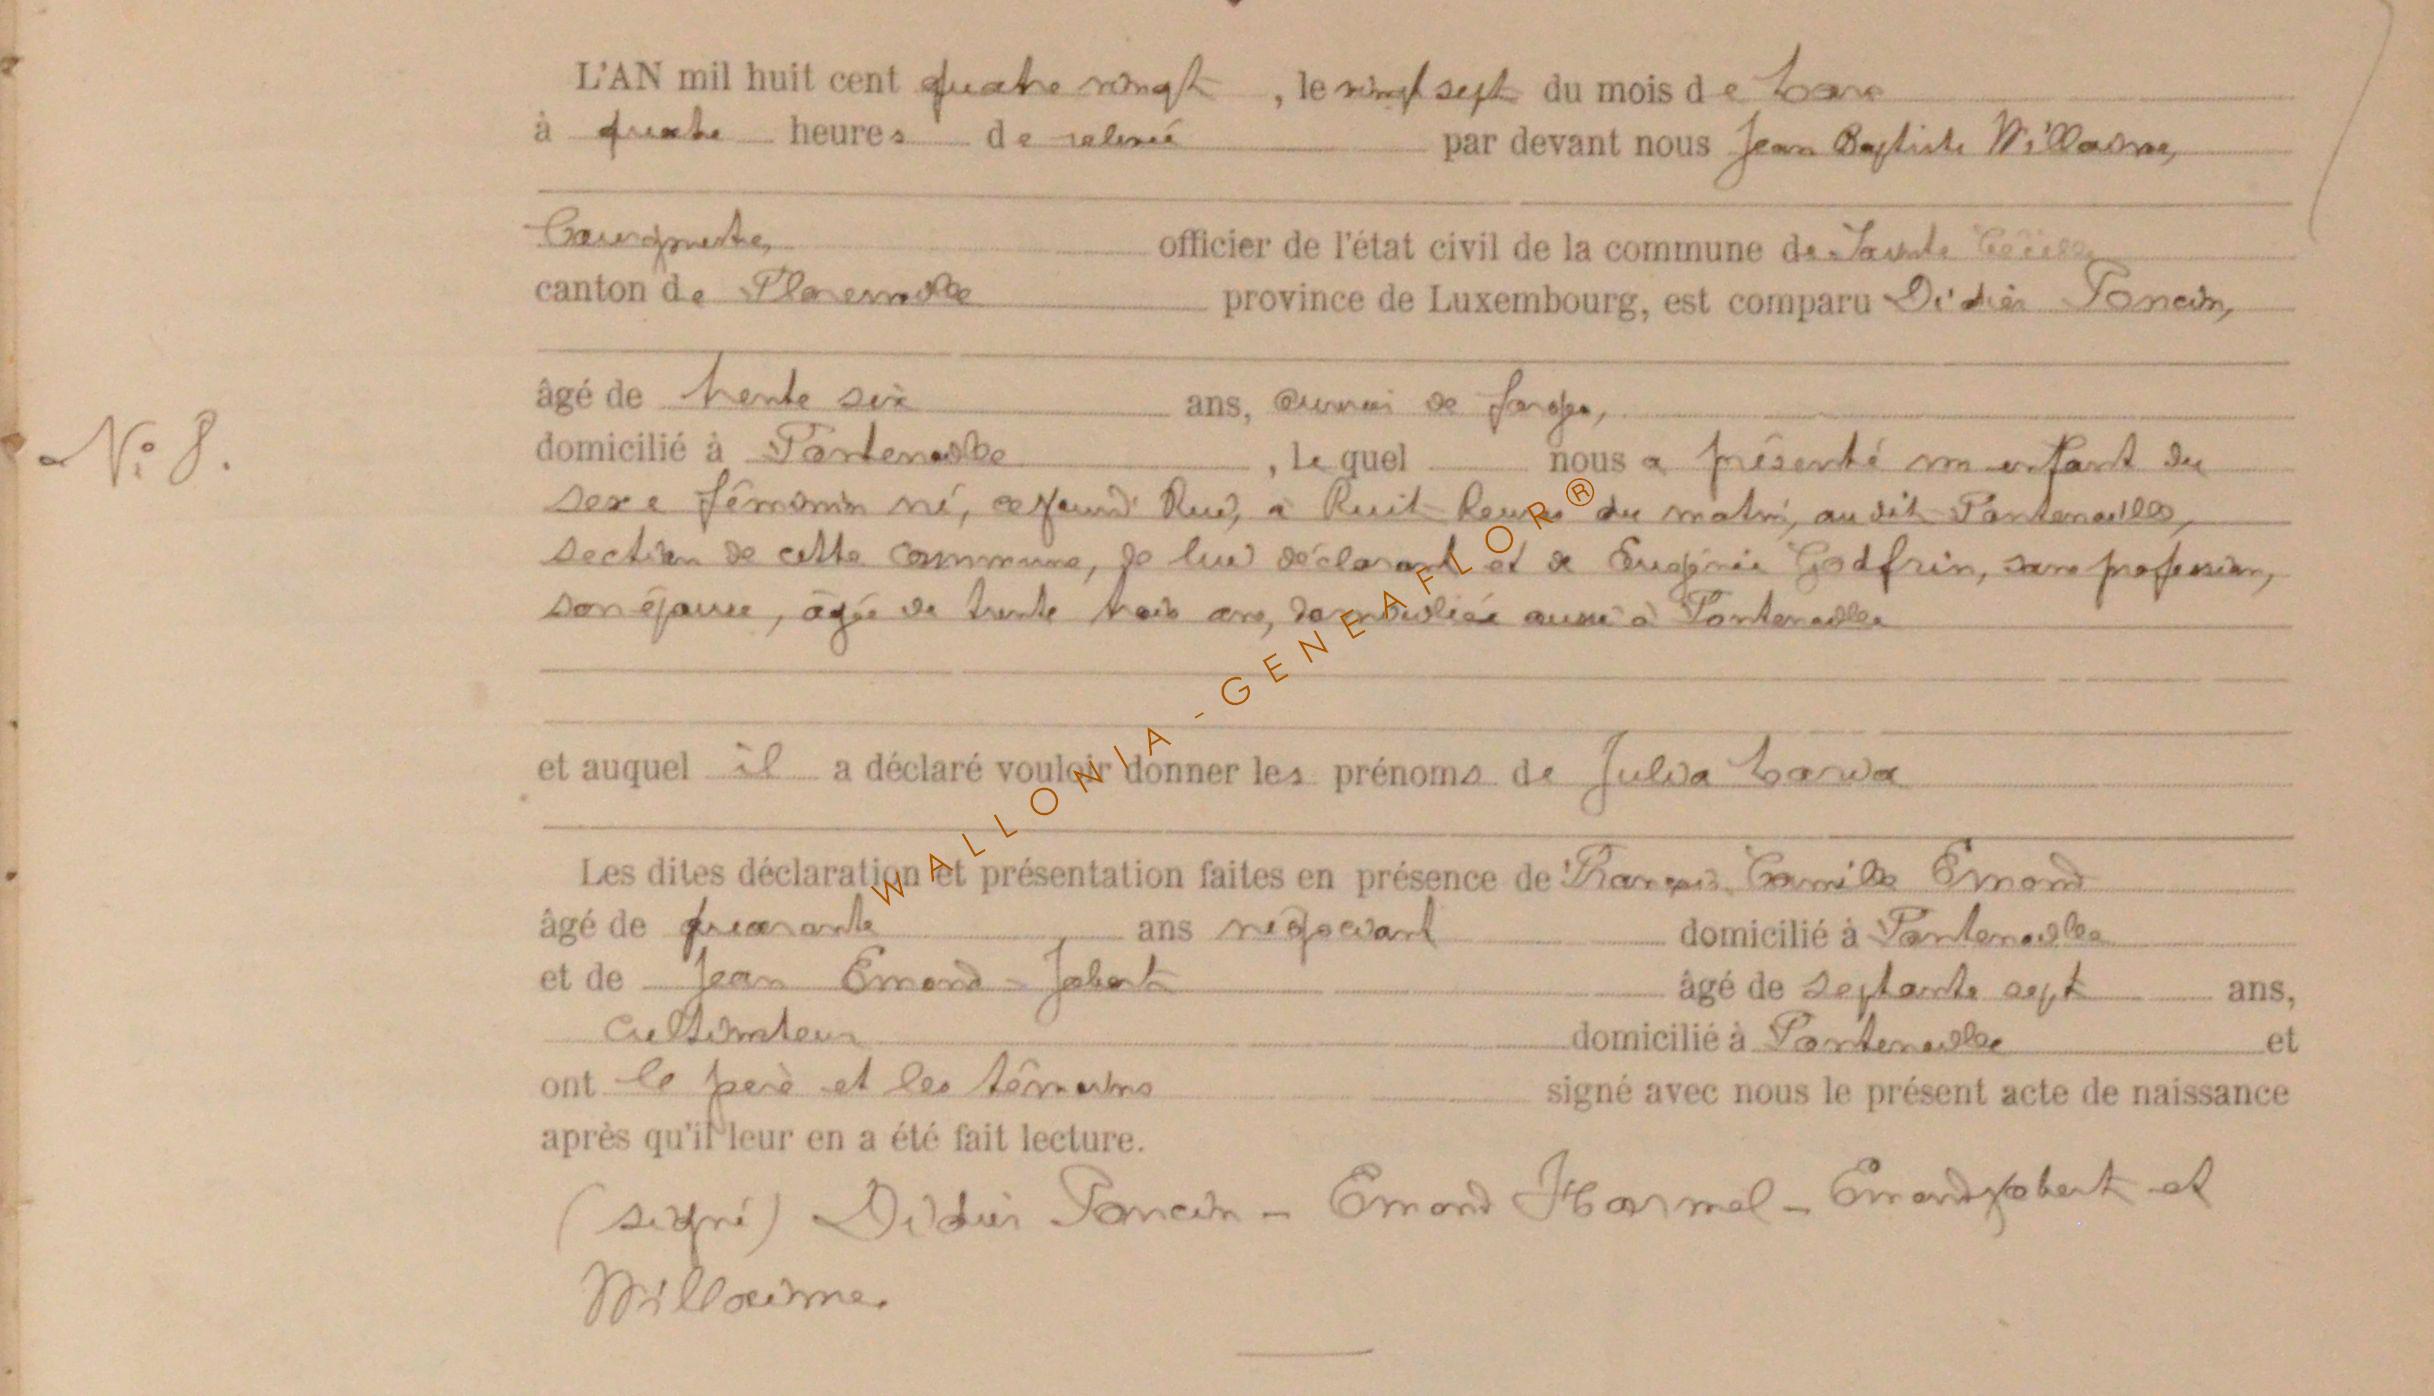 L'AN mil huit cent quatre vingt, le vingt sept du mois de Mars
à quatre heures de relevé par devant nous Jean Baptiste Willaime,
Bourgmestre, officier de l'état civil de la commune de Sainte Cécile
canton de Florenville province de Luxembourg, est comparu Didier Poncin,
âgé de trente six ans, ouvrier de forge,
N° 8.
domicilié à Fontenoille, le quel nous a présenté un enfant du
sexe féminin né, ce jourd'hui, à huit heures du matin, au dit Fontenoille,
section de cette commune, de lui déclarant et de Eugénie Godfrin, sans profession,
son épouse, âgée de trente trois ans, domiciliée aussi à Fontenoille
et auquel il a déclaré vouloir donner les prénoms de Julia Maria
Les dites déclaration et présentation faites en présence de François Camille Emond
âgé de quarante ans négociant domicilié à Fontenoille
et de Jean Emond - Jobert âgé de septante sept ans,
cultivateur domicilié à Fontenoille et
ont le père et les témoins signé avec nous le présent acte de naissance
après qu'il leur en a été fait lecture.
(signé) Didier Poncin - Emond Harmel - Emond Jobert et
Willaime.
WALLONIA-GENEAFLOR®